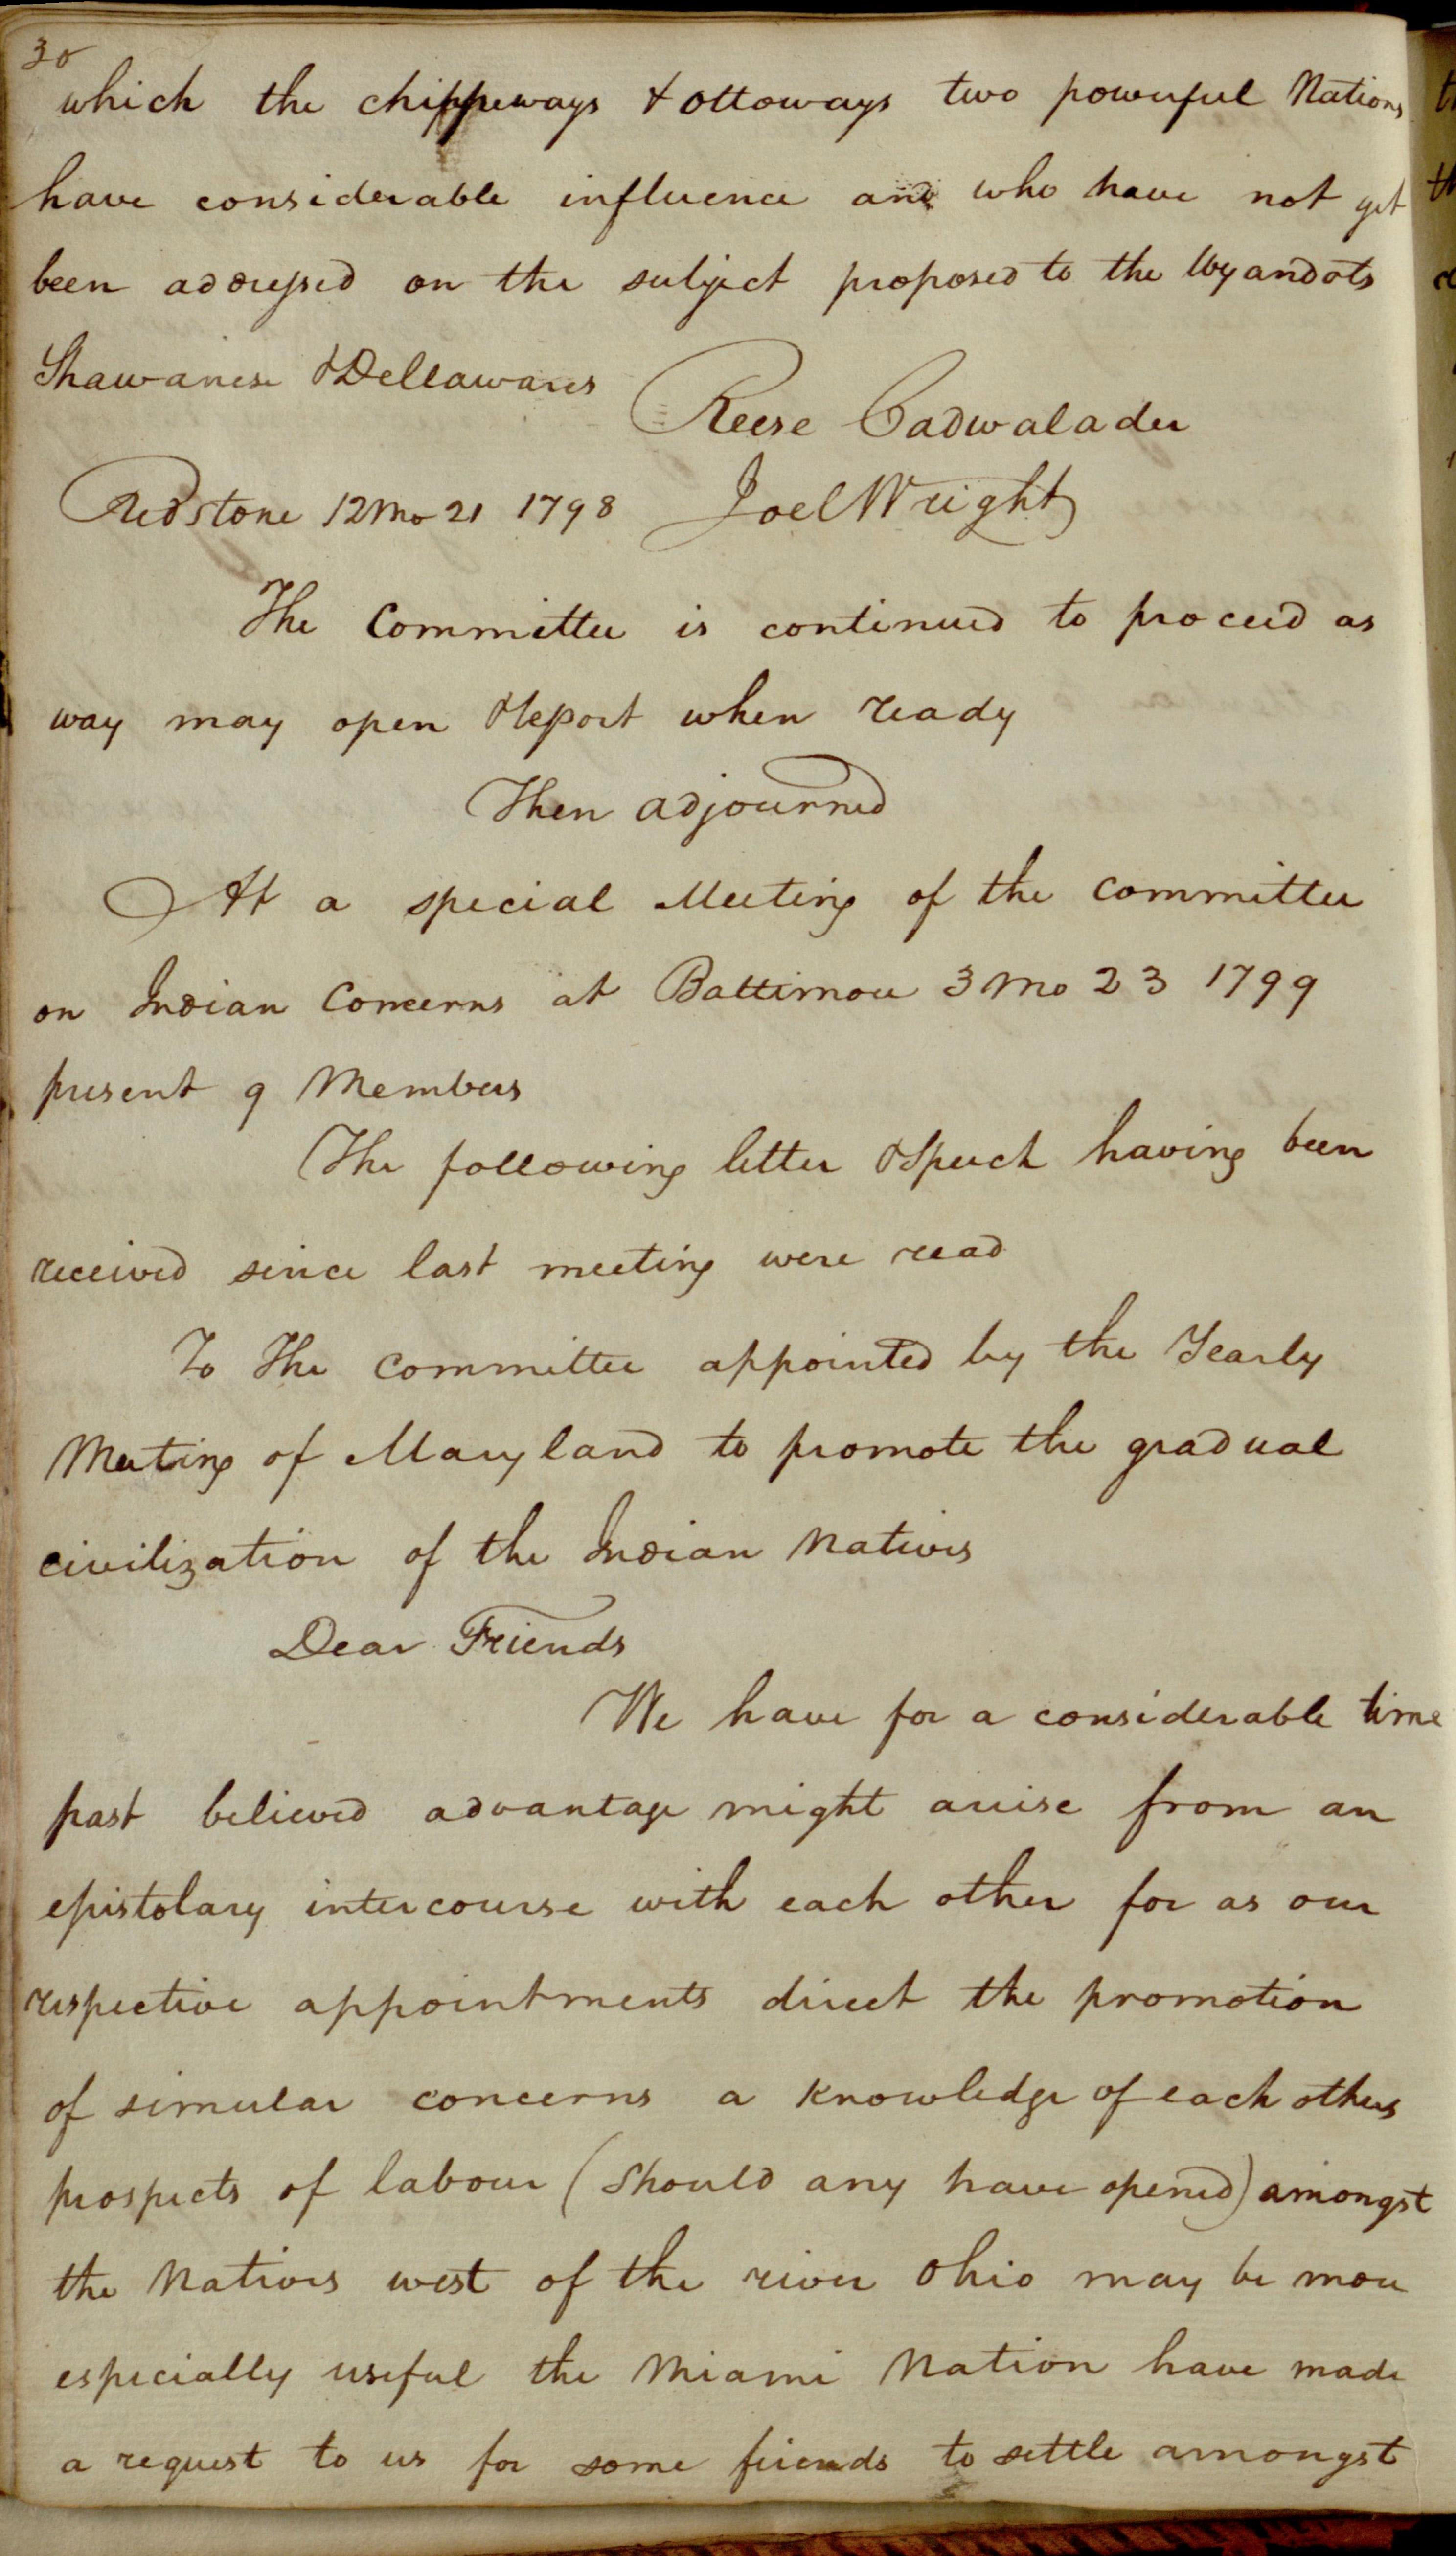 30
which the chippeways & ottoways two powerful Nations
have considerable influence and who have not yet
been addressed on the subject proposed to the Wyandots
Shawanese & Dellawares
Reese Cadwalader
Redstone 12 mo 21 1798 Joel Wright
The Committee is continued to proceed as
way may open & Report when ready
Then adjourned
At a special Meeting of the committee
on Indian Concerns at Baltimore 3 mo 23 1799
present 9 Members
The following letter & Speech having been
received since last meeting were read
To The committee appointed by the Yearly
Meeting of Maryland to promote the gradual
civilization of the Indian Natives
Dear Friends
We have for a considerable time
past believed advantage might arise from an
epistolary intercourse with each other for as our
respective appointments direct the promotion
of simular concerns a knowledge of each others
prospects of labour (should any have opened) amongst
the Natives west of the river Ohio may be more
especially useful the Miami Nation have made
a request to us for some friends to settle amongst